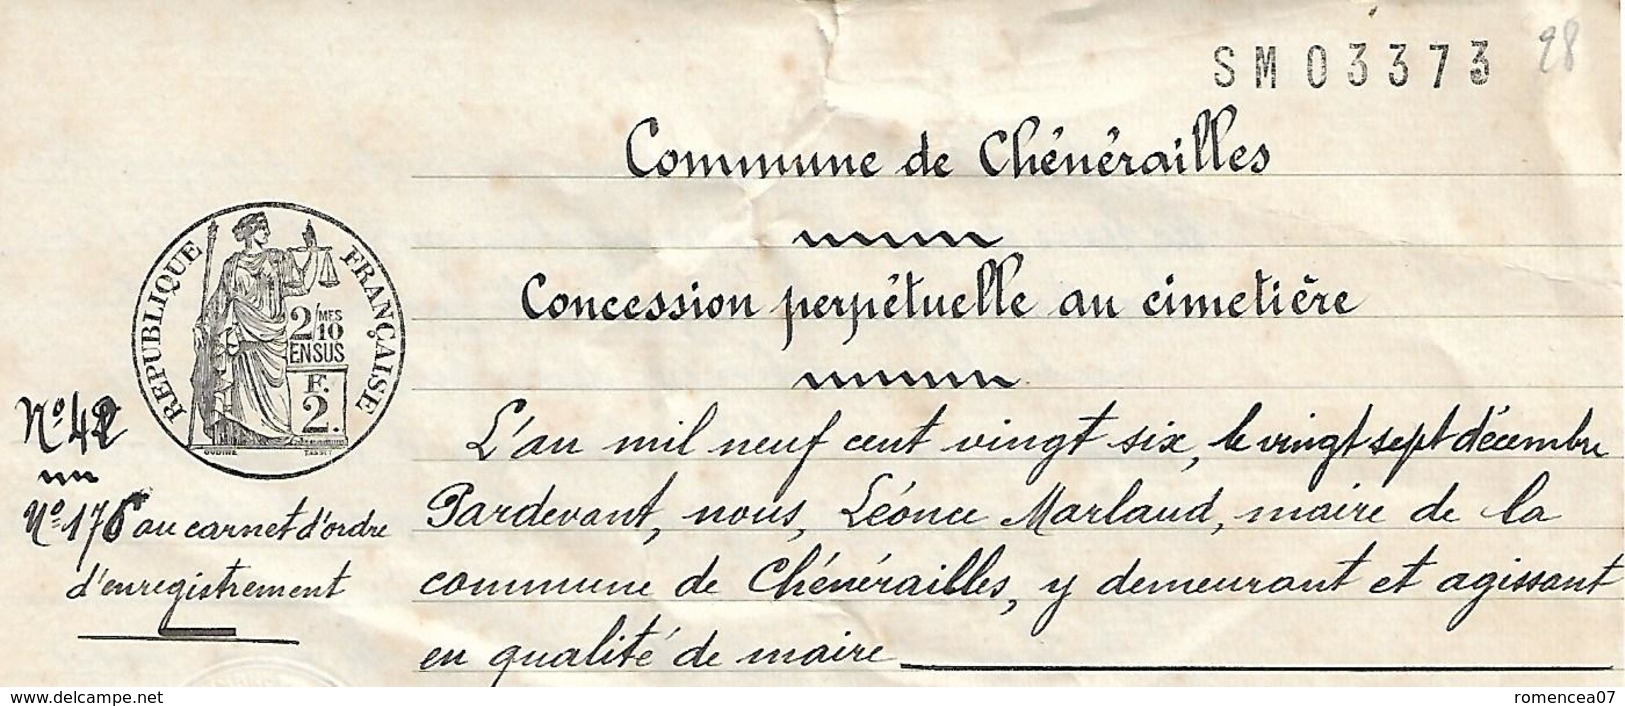 SM 03373 98
Commune de Chénérailles
Concession perpétuelle au cimetière
RÉPUBLIQUE FRANÇAISE
2/MES
10
EN SUS
F.
2.
OUDINÉ TASSET
Nº 42
Nº 176 au carnet d'ordre
d'enregistrement
L'an mil neuf cent vingt six, le vingt sept décembre
Pardevant, nous, Léonce Marlaud, maire de la
commune de Chénérailles, y demeurant et agissant
en qualité de maire
www.delcampe.net
romencea07